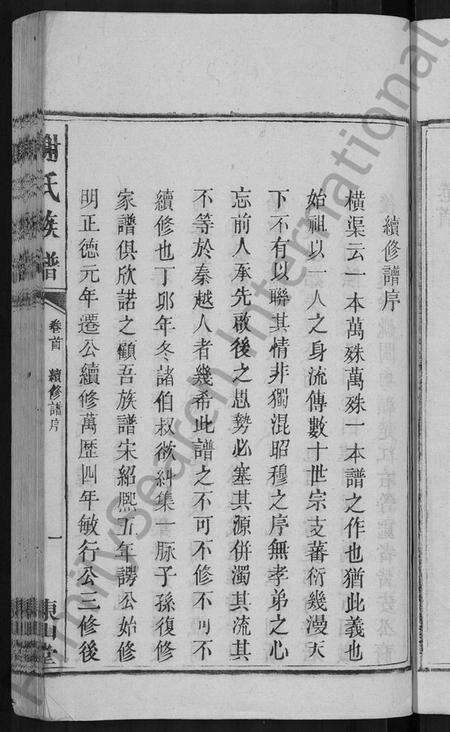 續修譜序
橫渠云一本萬殊萬殊一本譜之作也猶此義也
始祖以一人之身流傳數十世宗支蕃衍幾漫天
下不有以聯其情非獨混昭穆之序無孝弟之心
忘前人承先啟後之思勢必塞其源併濁其流其
不等於秦越人者幾希此譜之不可不修不可不
續修也丁邜年冬諸伯叔欲糾集一脉子孫復修
家譜俱欣諾之顧吾族譜宋紹熙五年諤公始修
明正德元年遷公續修萬歷四年敏行公三修後
謝氏族譜
卷首
續修譜序
一
東山堂
FamilySearch International